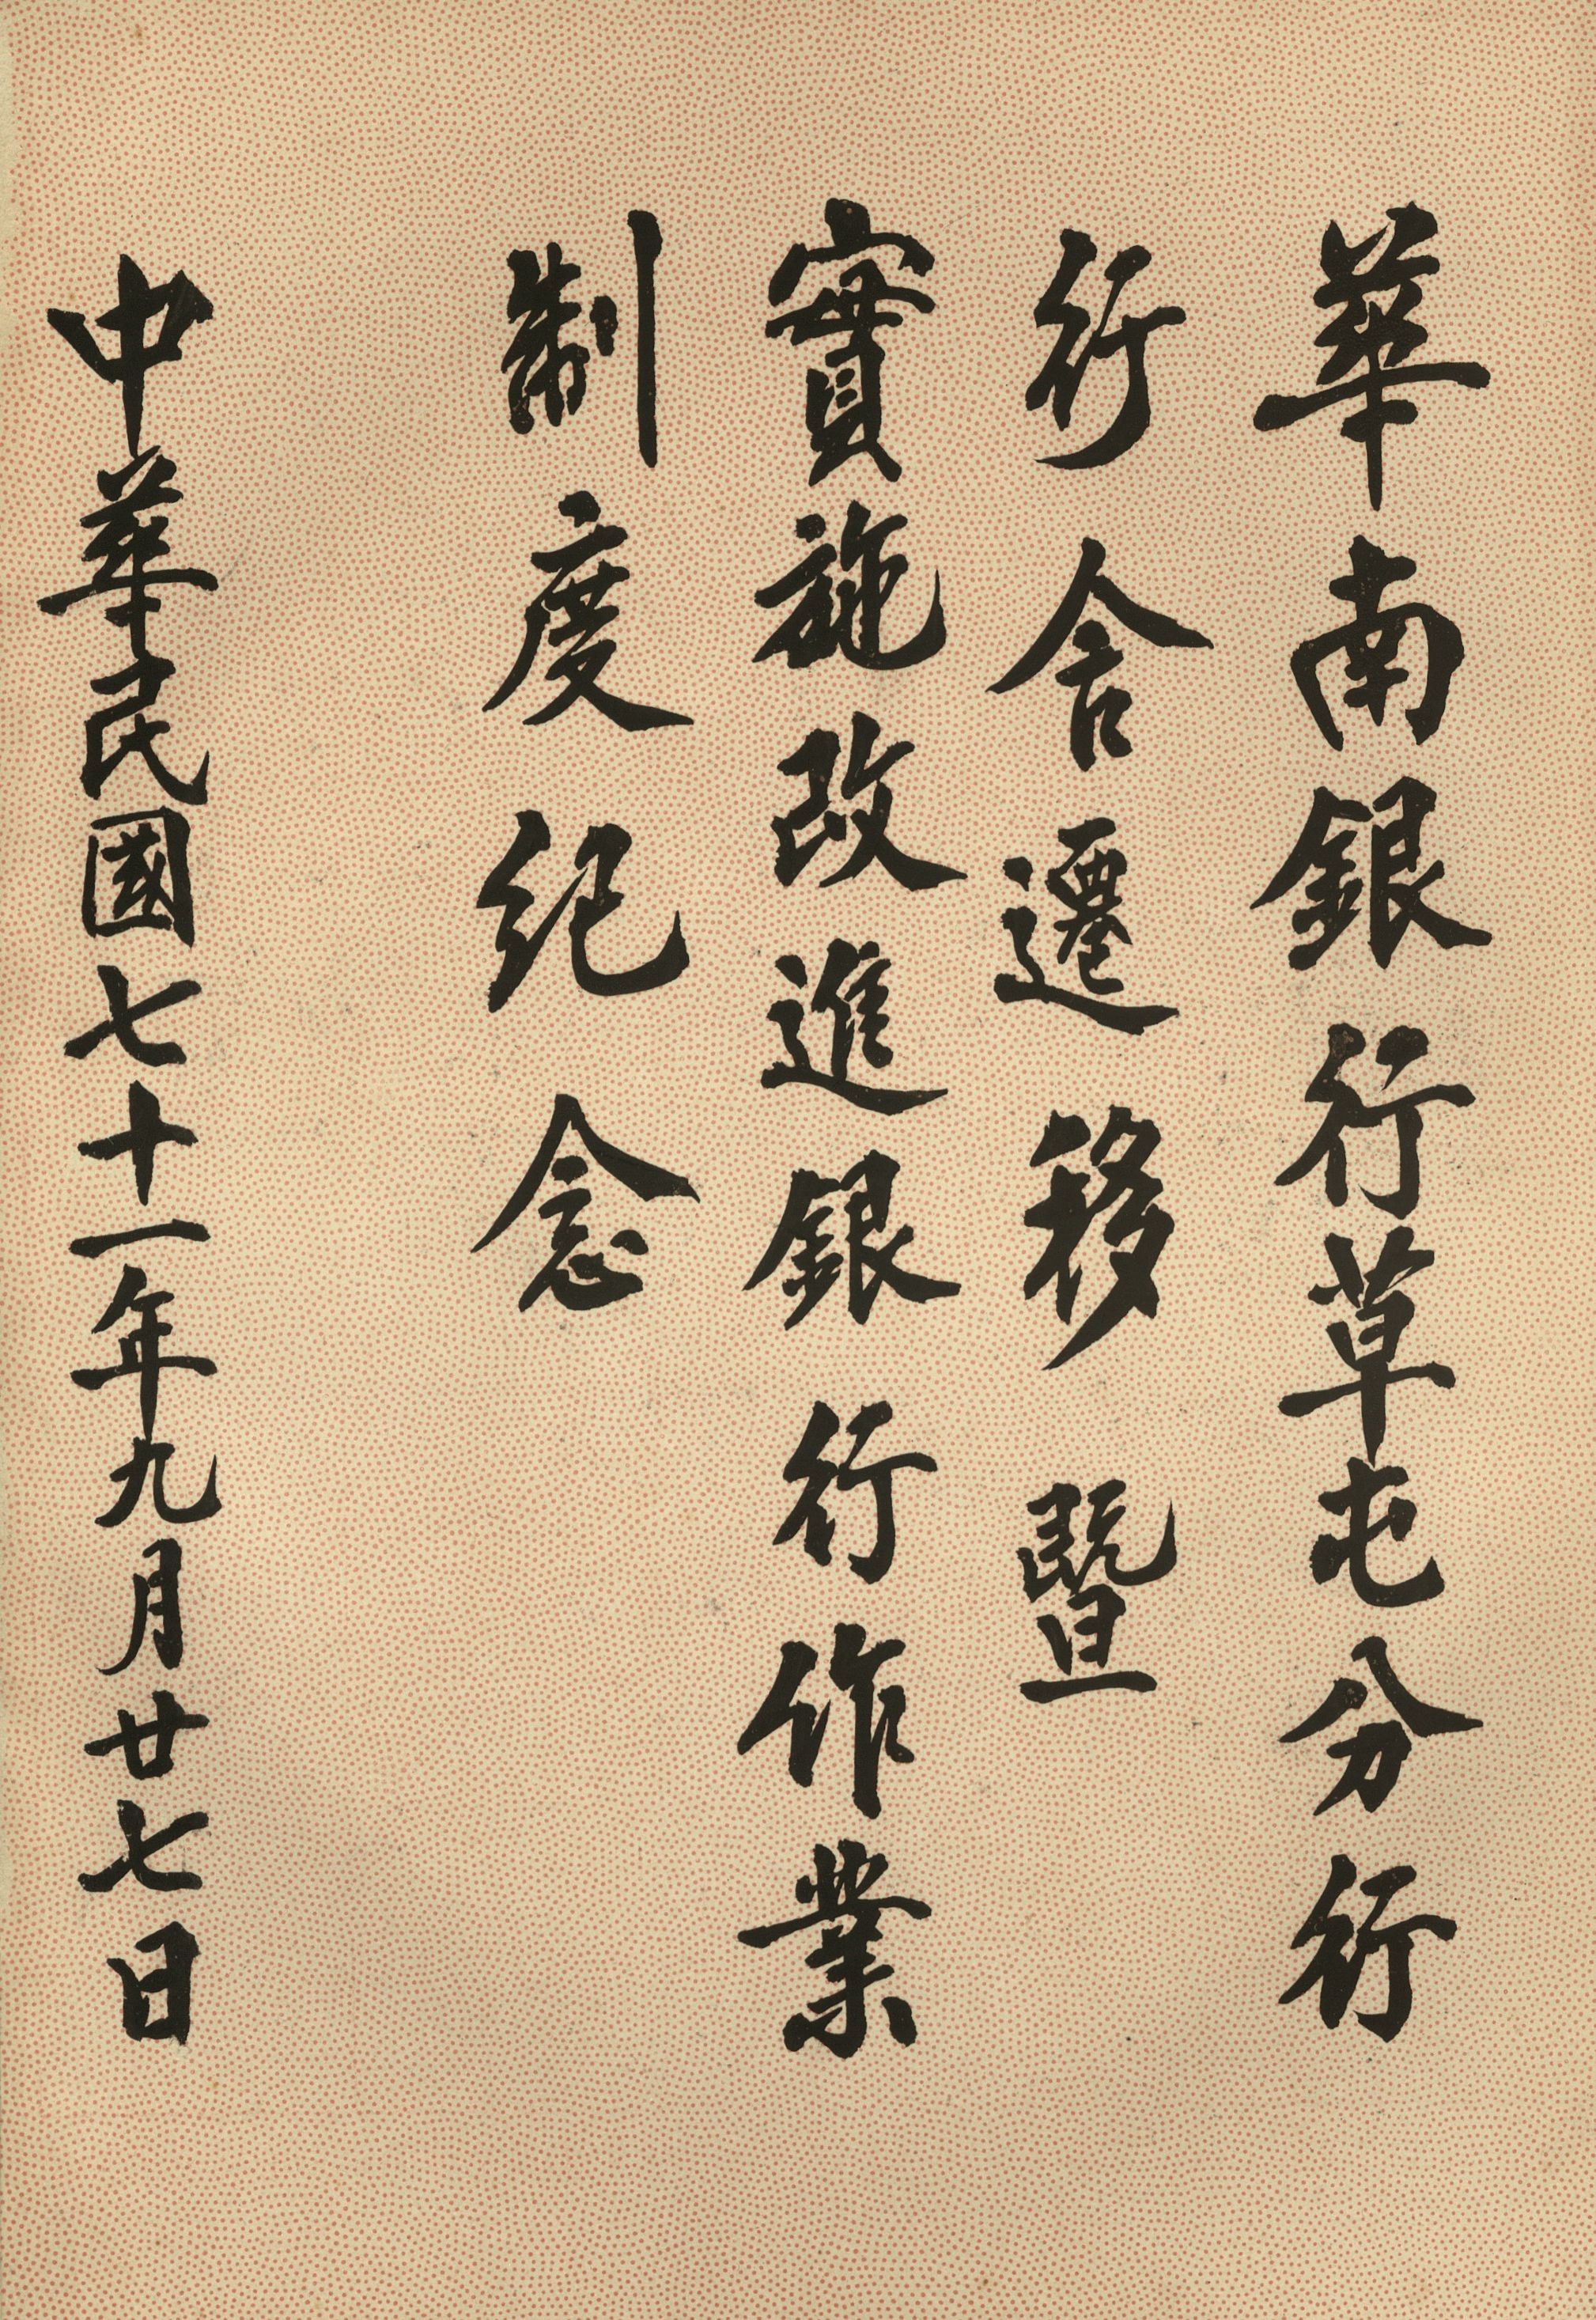 華南銀行草屯分行
行舍遷移暨
實施改進銀行作業
制度紀念
中華民國七十一年九月廿七日